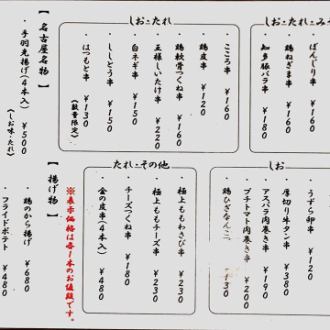 しお・たれ・み
ぼんじり串 ¥160
鶏ねぎま串 ¥160
知多豚バラ串 ¥180
しお・たれ
こころ串 ¥160
鶏皮串 ¥120
鶏軟骨つくね串 ¥160
玉様しいたけ串 ¥220
白ネギ串 ¥150
ししとう串 ¥150
はつもと串 ¥130
(数量限定)
【名古屋名物】
手羽先揚げ(4本入) ¥500
(しお味・たれ)
しお
うずら卵串 ¥120
厚切り牛タン串 ¥380
アスパラ肉巻き串 ¥190
プチトマト肉巻き串 ¥200
鶏ひざなんこつ ¥130
たれ・その他
極上ももわさび串 ¥230
極上ももチーズ串 ¥230
チーズつくね串 ¥180
金の皮串(4本入) ¥480
※表示価格は毎1本のお値段です。
【揚げ物】
鶏のから揚げ ¥680
フライドポテト ¥480